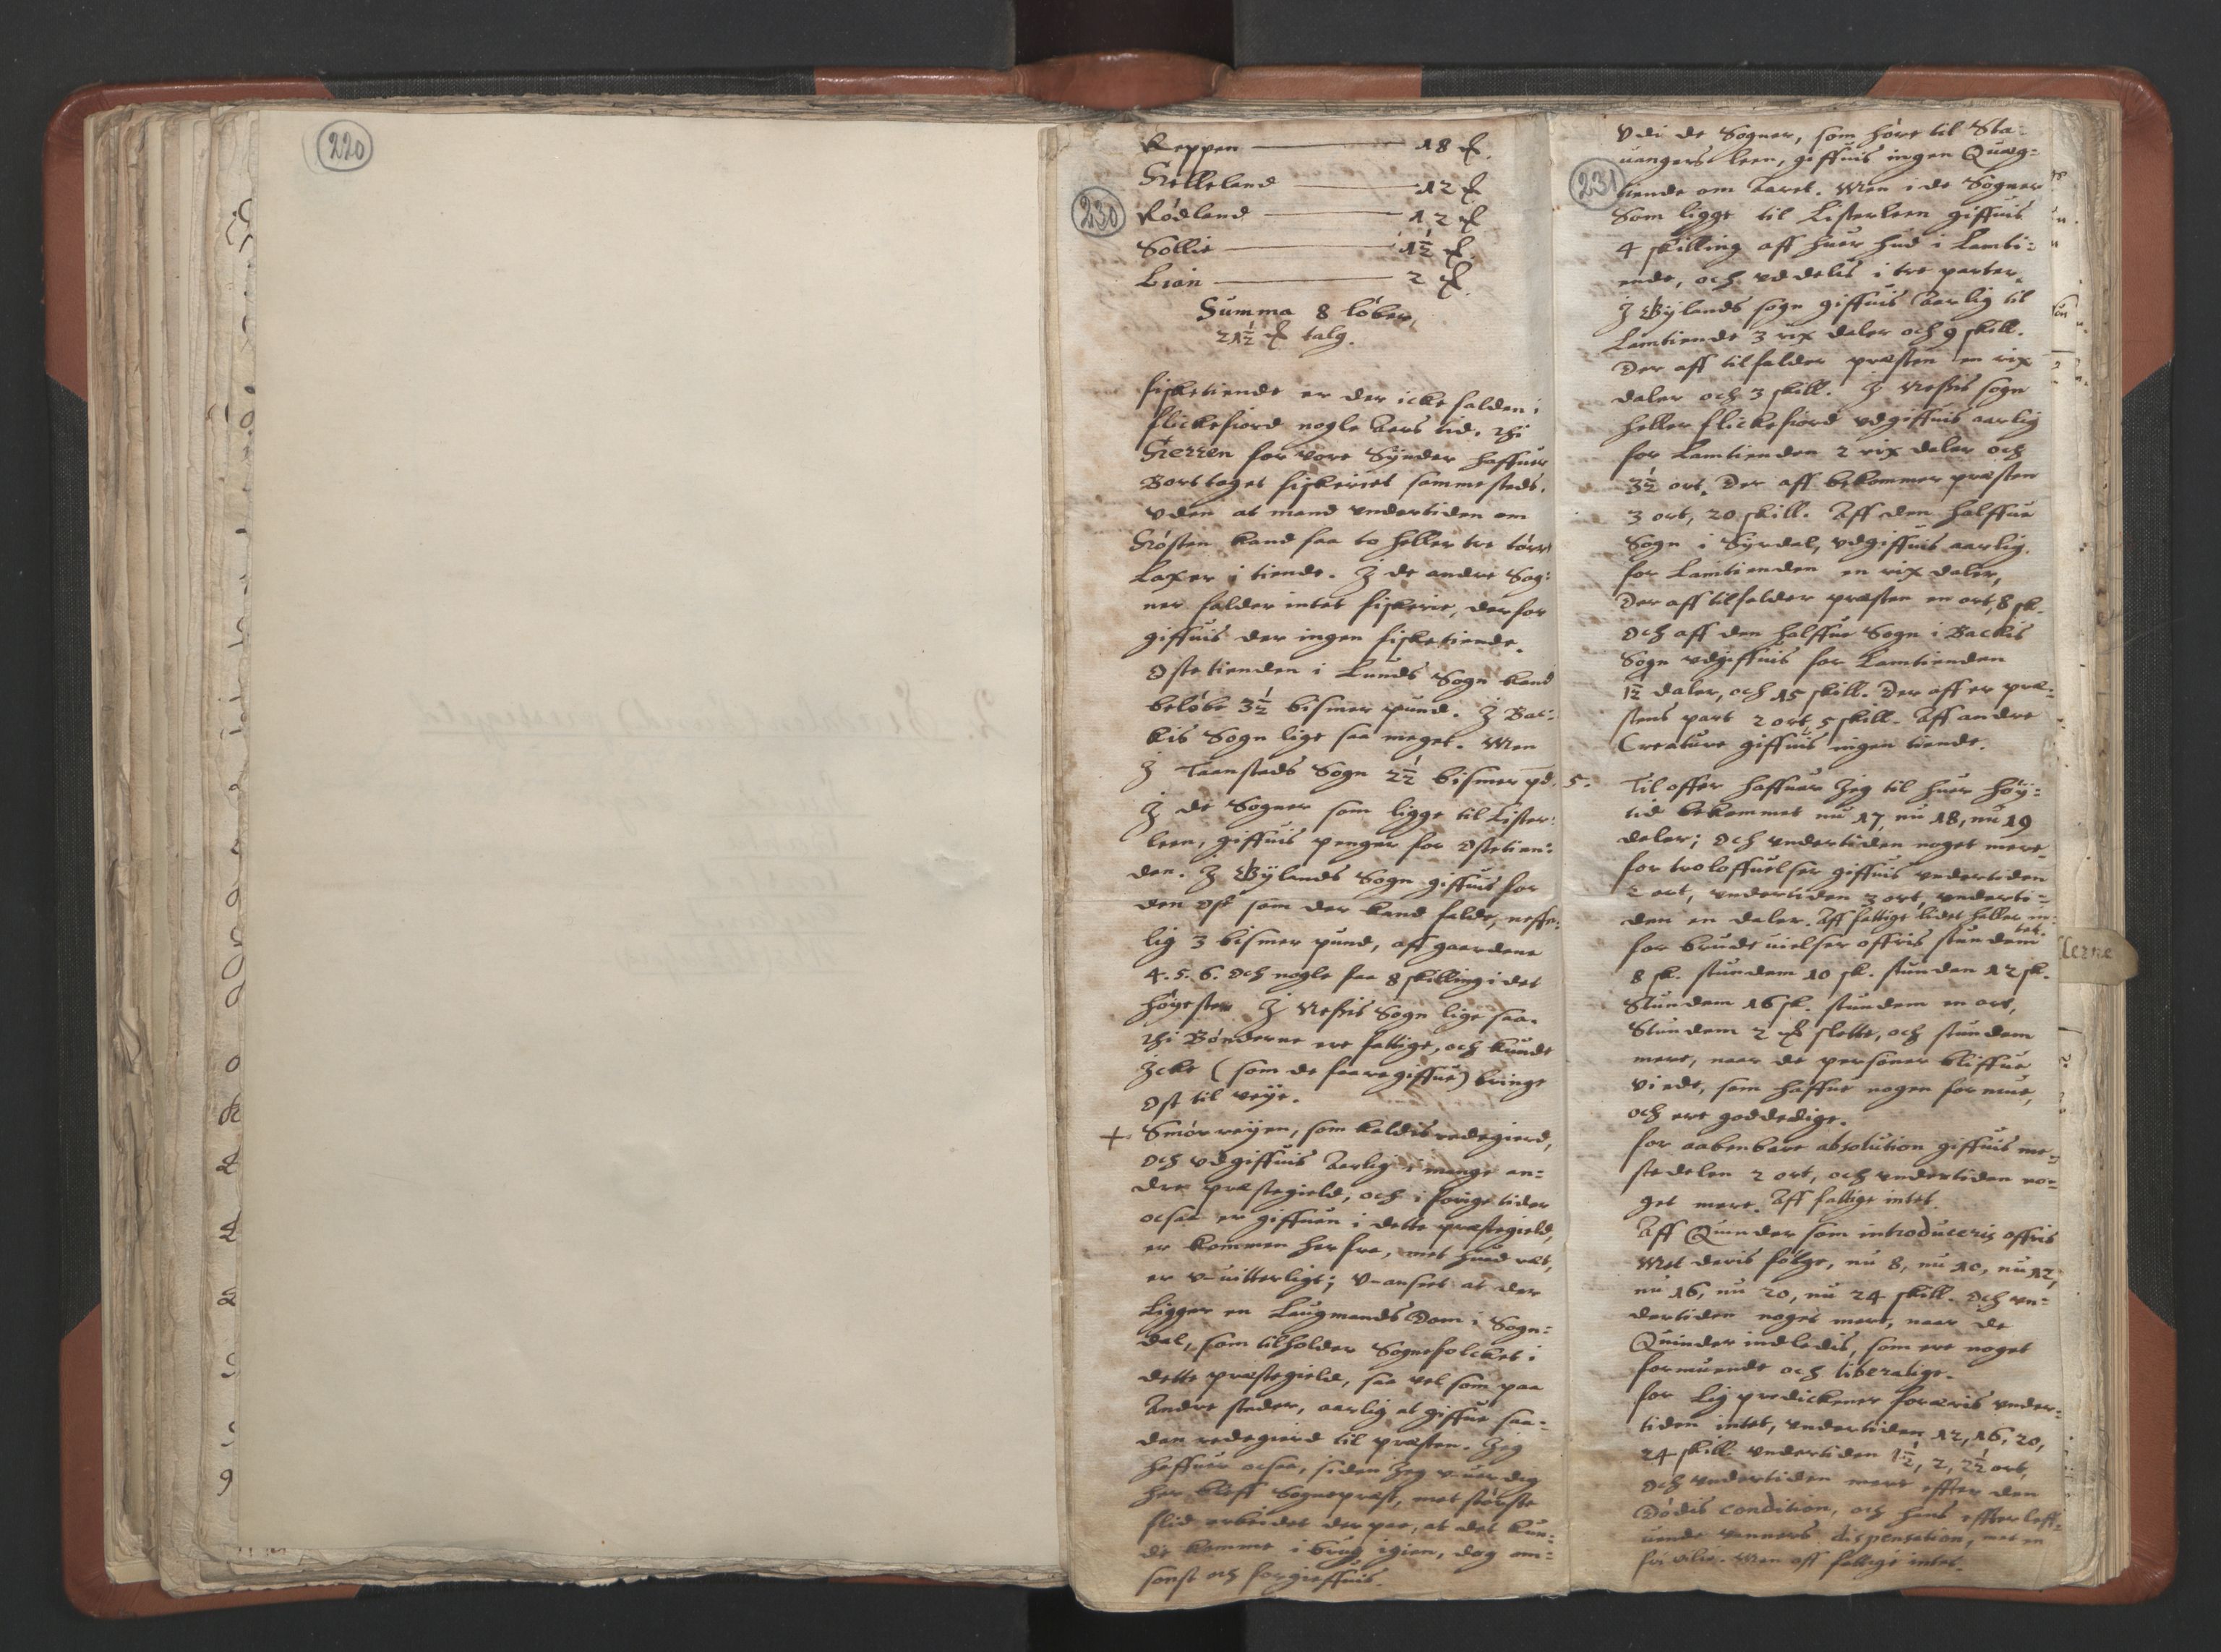 220
230
Keppen — 18 ℔.
Helleland — 12 ℔
Rødland — 12 ℔
Sollie — 1½ ℔.
Lian — 2 ℔.
Summa 8 løber,
21½ ℔ talg.
fisketiende er der icke falden i
flickefiord nogle Aars tid. thi
Herren for vore Synder haffuer
Borttaget fiskeriet sammesteds.
Vden at mand vndertiden om
Høsten kand faa to heller tre tørr
Laxer i tiende. J de andre Sog:
ner falder intet fiskerie, derfor
giffuis der ingen fisketiende.
Ostetienden i Lunds Sogn kand
beløbe 3½ bismer pund. J Bac:
kis Sogn lige saa meget. Men
J Taanstads Sogn 2½ bismer pd.
J de Sogner som ligge til Lister:
leen, giffuis penger for Ostetien:
den. J Bylands Sogn giffuis for
den Ost som der kand falde, neffn:
lig 3 bismer pund, aff gaardene
4. 5. 6. Och nogle faa 8 skilling i det
høyeste. J Neßis Sogn lige saa.
thi Bønderne ere fattige, och kunde
Jcke (som de faaregiffue) bringe
Ost til veye.
+ Smørreyen, som kaldis redegierd,
Och vdgiffuis Aarlig i mange an:
dre præstegield, och i forige tider
ocsaa er giffuen i dette præstegield,
er kommen her fra, met huad ræt,
er v-uitterligt; V-anseet at der
Ligger en Laugmands Dom i Sogn:
dal, som tilholder Sognefolcket i
dette præstegield, saa vel som paa
Andre steder, aarlig at giffue saa:
dan redegierd til præsten. Jeg
haffuer ocsaa, siden Jeg v-uerdig
her bleff Sognepræst, met største
flid arbeidet der paa, at det kun:
de komme i brug igien, dog om:
sonst och forgieffuis.
231
Vdi de Sogner, som høre til Sta:
uangers leen, giffuis ingen Quæg:
tiende om Aaret. Men i de Sogner
Som ligge til Listerleen giffuis
4 skilling aff huer hud i Lamti:
ende, och vddelis i tre parter.
J Bylands sogn giffuis Aarlig til
Lamtiende 3 rix daler och 9 skill.
Der aff tilfalder præsten en rix
daler och 3 skill. J Neßis sogn
heller flickefiord vdgiffuis aarlig
for Lamtienden 2 rix daler och
3½ ort. Der aff bekommer præsten
3 ort, 20 skill. Aff den halffue
Sogn i Syrdal, vdgiffuis aarlig
for Lamtienden en rix daler,
Der aff tilfalder præsten en ort, 8 sk.
Och aff den halffue Sogn i Backis
Sogn vdgiffuis for Lamtienden
1½ daler, och 15 skill. Der aff er præ:
stens part 2 ort, 5 skill. Aff andre
Creature giffuis ingen tiende.
5. Til offer haffuer Jeg til huer høy:
tid bekommet nu 17, nu 18, nu 19
daler; Och vndertiden noget mere.
for troloffuelser giffuis vndertiden
2 ort, vndertiden 3 ort, vnderti:
den en daler. Aff fattige lidet heller in:
tet.
for brudeuielser offris stundem
8 sk. stundem 10 sk. stunden 12 sk.
Stundem 16 sk. stundem en ort,
Stundem 2 ℔ slette, och stundem
mere, naar de personer bliffue
viede, som haffue nogen formue,
och ere goddedige.
for aabenbare absolution giffuis me:
stedelen 2 ort, och vndertiden no:
get mere. Aff fattige intet.
Aff Quinder som introduceris offris
Met deris følge, nu 8, nu 10, nu 12,
nu 16, nu 20, nu 24 skill. Och vn:
dertiden noget mere, naar de
Quinder indledis, som ere noget
formuende och liberalige.
for Lig predickener foræris vnder:
tiden intet, vndertiden 12, 16, 20,
24 skill. vndertiden 1½, 2, 2½ ort,
Och vndertiden mere effter den
Dødis condition, och hans effterleff:
uende venners dispensation, met en
fri vilie. Men aff fattige intet.